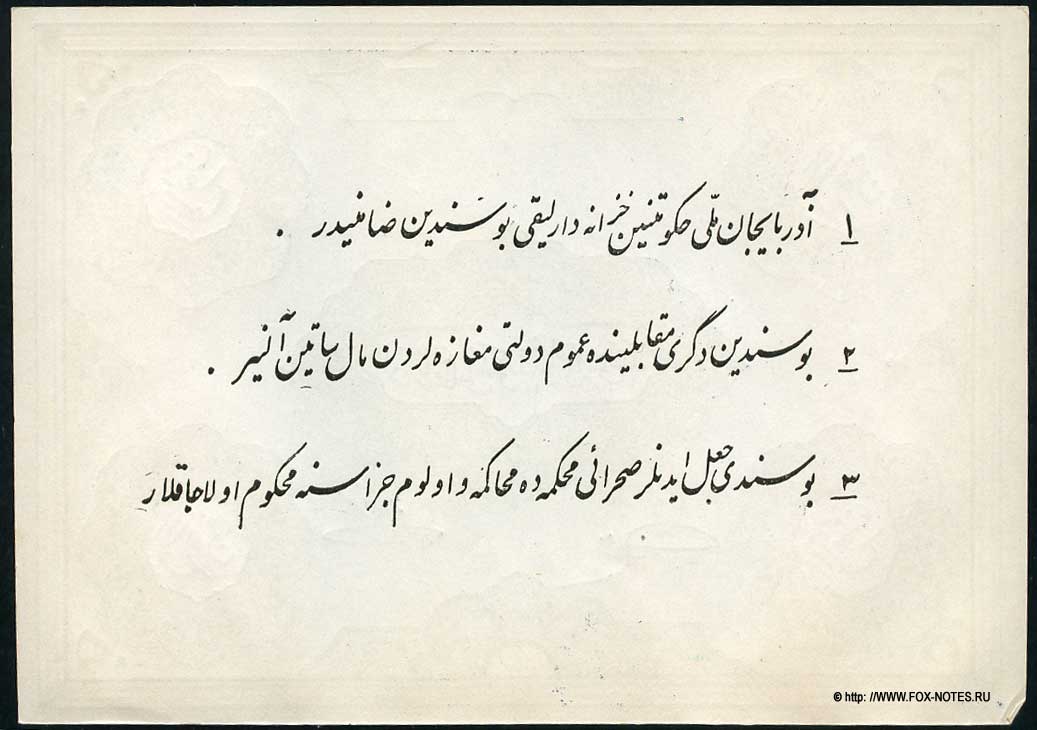 ۱ آذربایجان ملّی حکومتنین خزانه دارلیقی بو سندین ضامنیدر .
۲ بو سندین دگری مقابلینده عموم دولتی مغازه لردن مال ساتین آلنیر .
۳ بو سندی جعل ایدنلر صحرائی محکمه ده محاکمه و اولوم جزاسنه محکوم اولاجاقلار
© http: //WWW.FOX-NOTES.RU